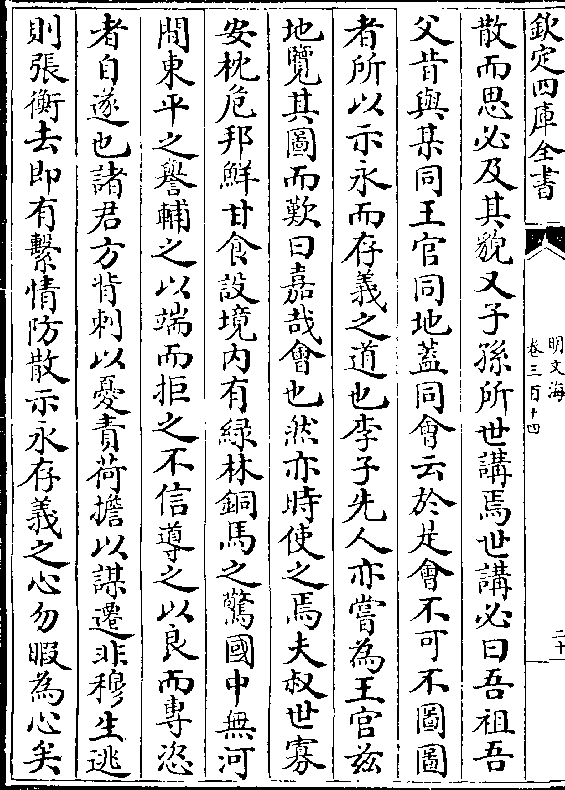 欽定四庫全書
明文海
卷三百十四
二十
散而思必及其貌又子孫所世講焉世講必曰吾祖吾
父昔與某同王官同地蓋同會云於是會不可不圖圖
者所以示永而存義之道也李子先人亦嘗為王官兹
地覽其圖而歎曰嘉哉會也然亦時使之焉夫叔世寡
安枕危邦鮮甘食設境内有緑林銅馬之驚國中無河
間東平之譽輔之以端而拒之不信導之以良而專恣
者自遂也諸君方背刺以憂責荷擔以謀遷非穆生逃
則張衡去即有繫情防散示永存義之心勿暇為心矣